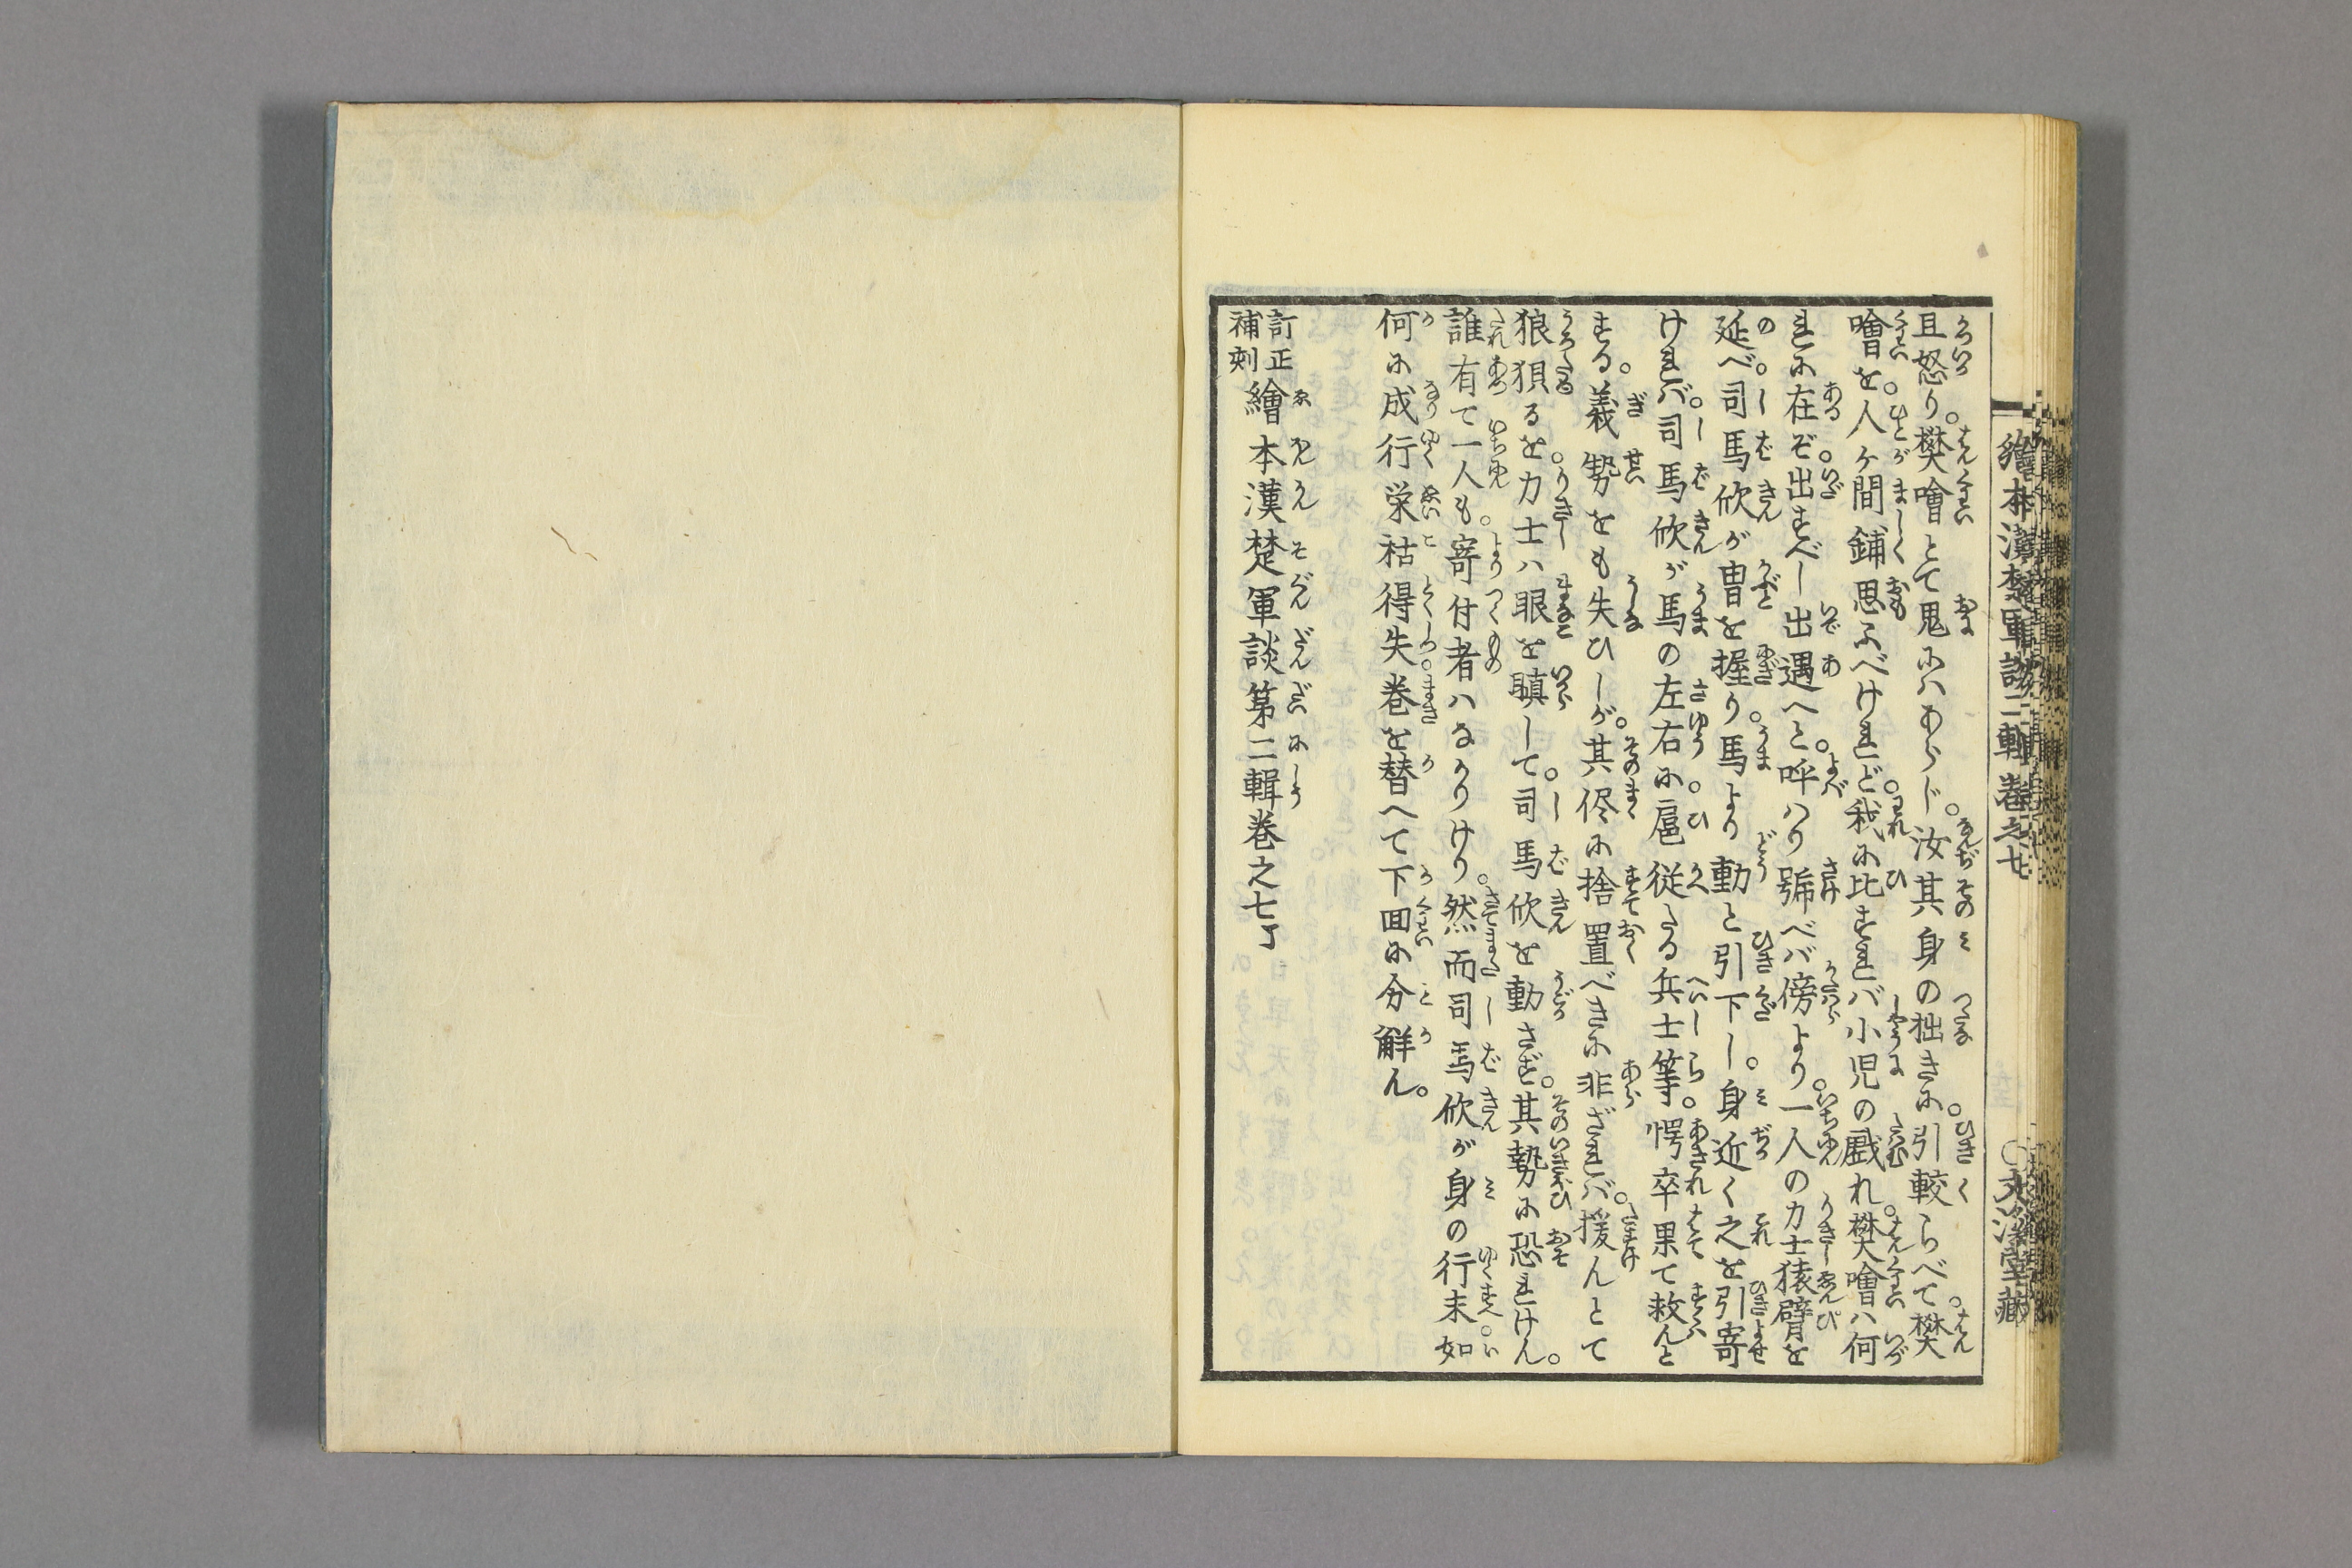 繪本漢楚軍談二輯卷之七
○文溪堂藏
且怒り。樊噲とて鬼にハあらじ。汝其身の拙きに。引較らべて。樊
噲を。人ヶ間鋪思ふべけれど。我に比すれバ小児の戯れ。樊噲ハ何
れに在ぞ。出すべし出遇へと。呼ハり號べバ傍より。一人の力士猿臂を
延べ。司馬欣が冑を握り。馬より動と引下し。身近く之を引寄
けれバ。司馬欣が馬の左右に。扈従たる兵士等。愕卒果て救んと
する。義勢をも失ひしが。其侭に捨置べきに非ざれバ。援んとて
狼狽るを。力士ハ眼を瞋して。司馬欣を動さず。其勢に恐れけん。
誰有て一人も。寄付者ハなかりけり。然而司馬欣が身の行末。如
何に成行栄祜得失。巻を替へて下回に分解ん。
訂正
補刻
繪本漢楚軍談第二輯巻之七了